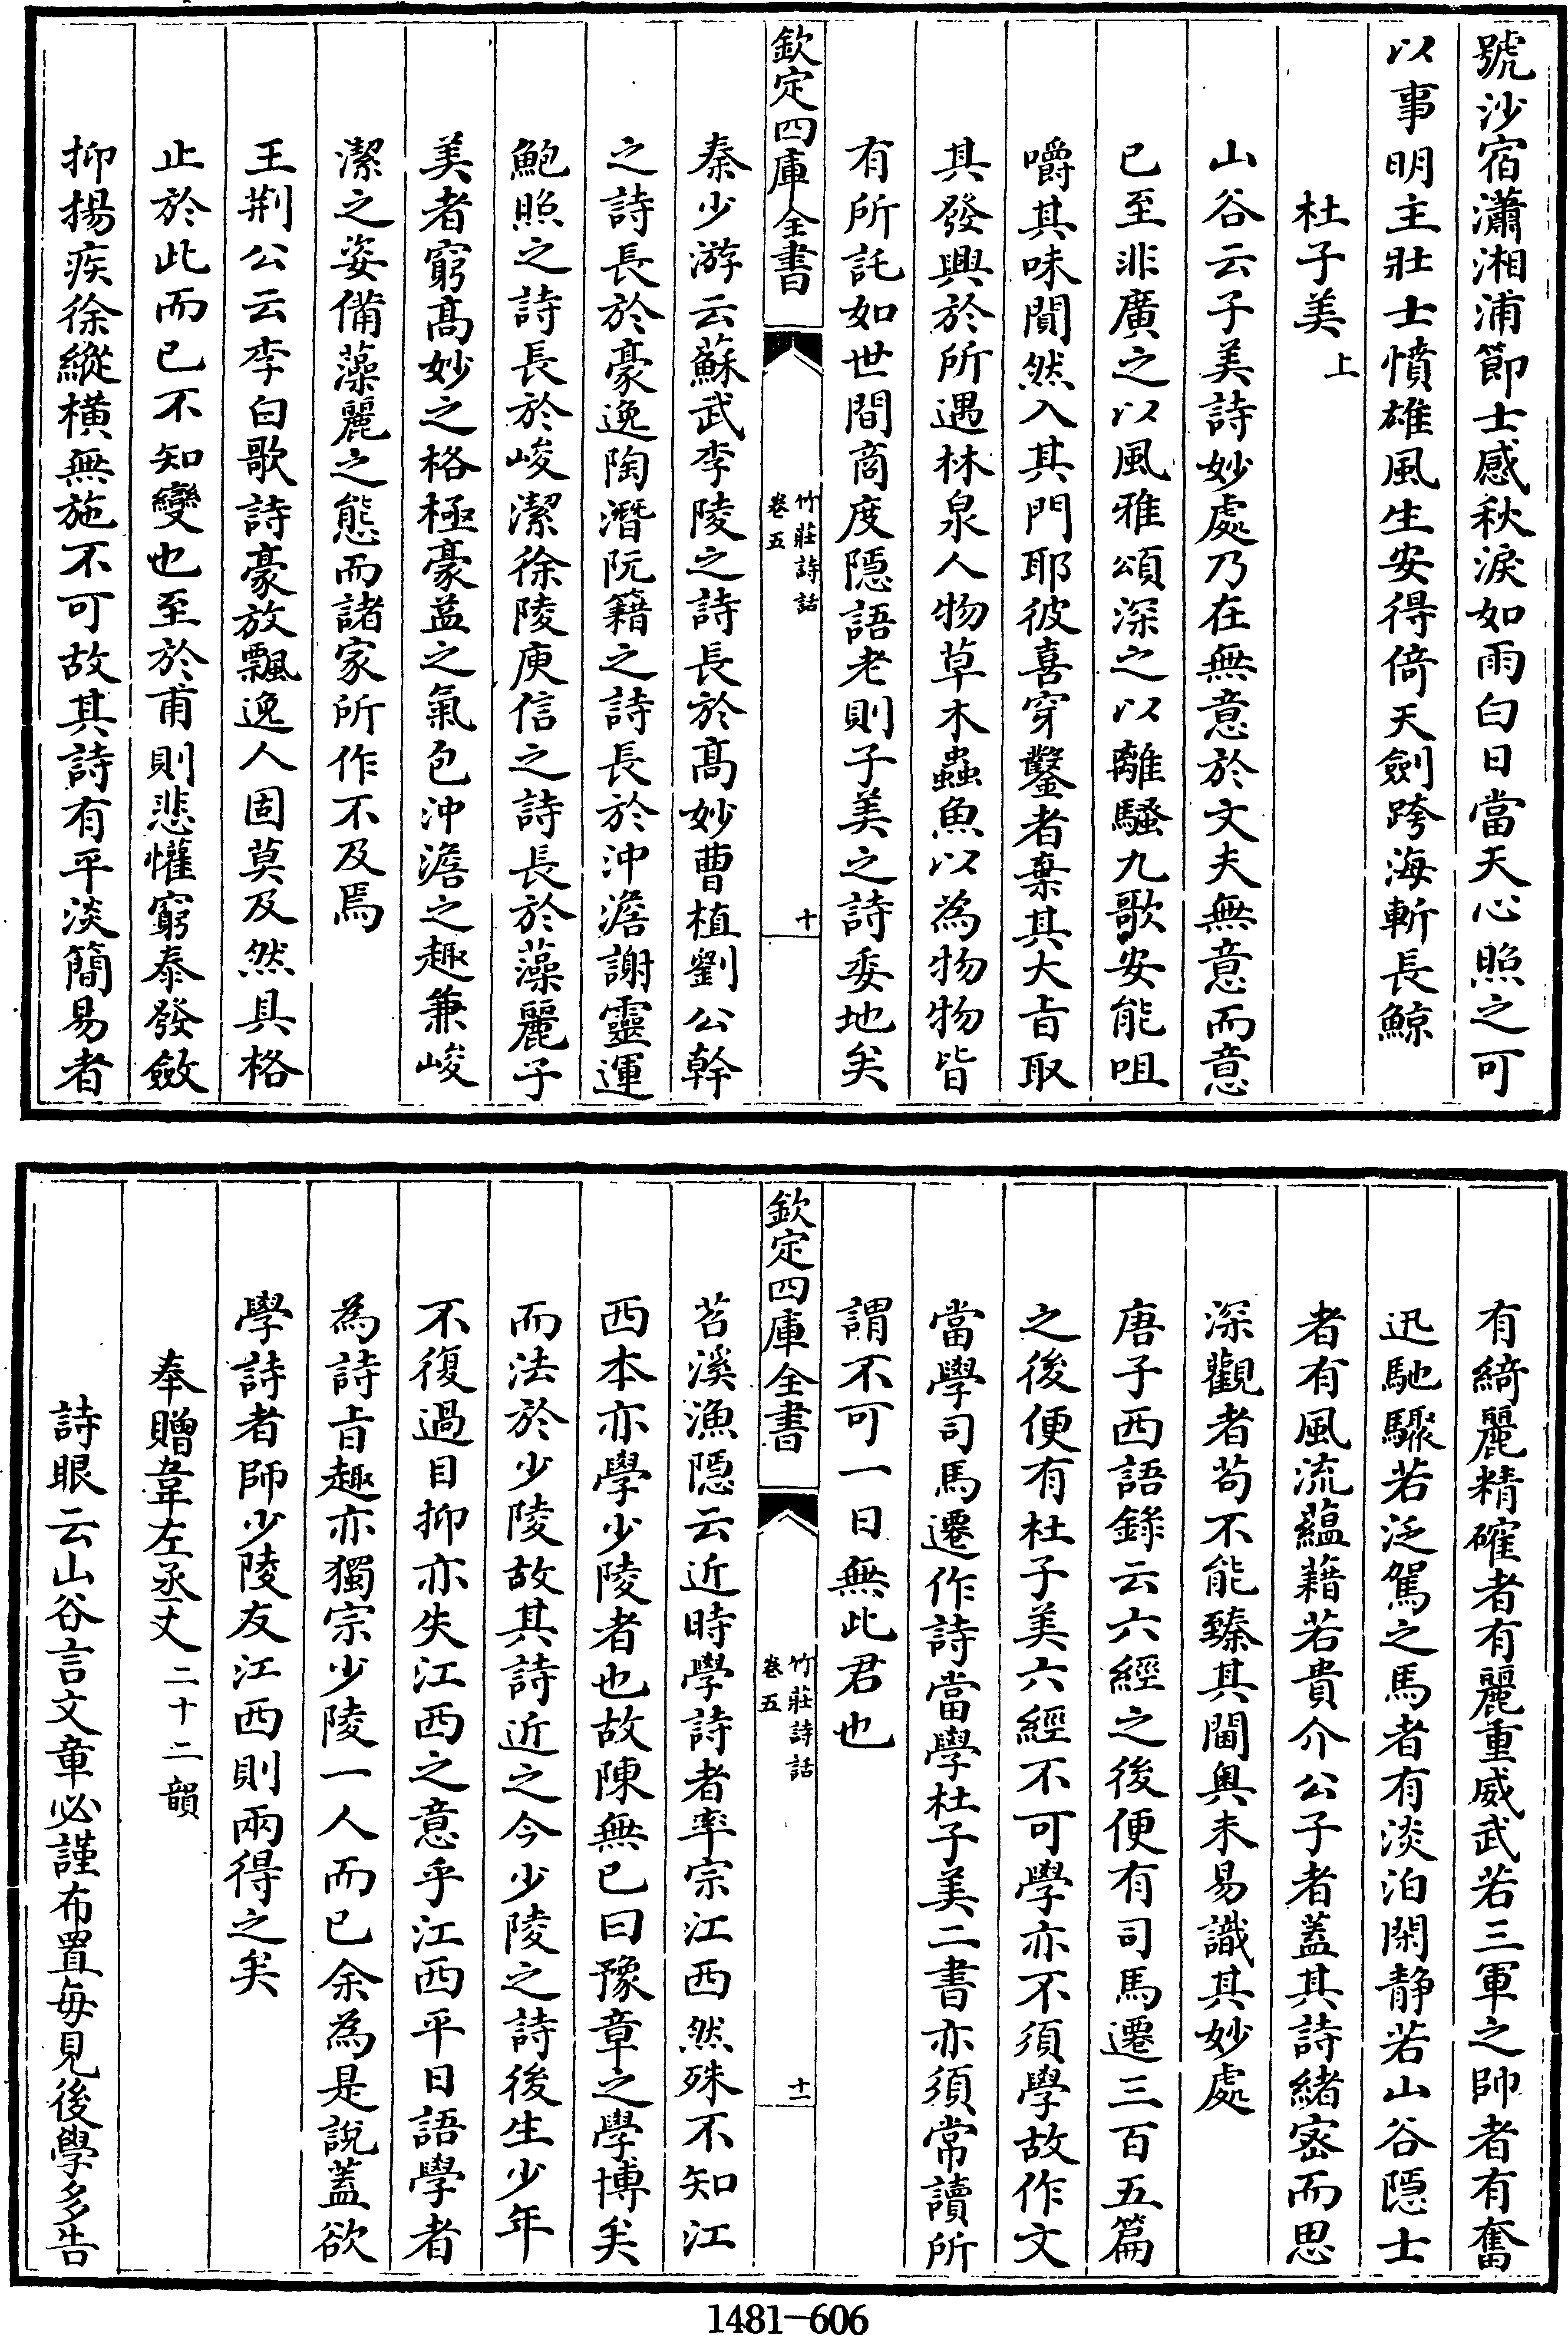 號沙宿瀟湘浦節士感秋淚如雨白日當天心照之可
以事明主壯士憤雄風生安得倚天劍跨海斬長鯨
杜子美上
山谷云子美詩妙處乃在無意於文夫無意而意
已至非廣之以風雅頌深之以離騷九歌安能咀
嚼其味闃然入其門耶彼喜穿鑿者棄其大㫖取
其發興於所遇林泉人物草木蟲魚以為物物皆
有所託如世間商度隱語老則子美之詩委地矣
欽定四庫全書
竹莊詩話
卷五
十
秦少游云蘇武李陵之詩長於髙妙曹植劉公幹
之詩長於豪逸陶潛阮籍之詩長於沖澹謝靈運
鮑照之詩長於峻潔徐陵庾信之詩長於藻麗子
美者窮髙妙之格極豪益之氣包沖澹之趣兼峻
潔之姿備藻麗之態而諸家所作不及焉
王荆公云李白歌詩豪放飄逸人固莫及然具格
止於此而已不知變也至於甫則悲懽窮泰發斂
抑揚疾徐縱橫無施不可故其詩有平淡簡易者
有綺麗精確者有麗重威武若三軍之帥者有奮
迅馳驟若泛駕之馬者有淡泊閑静若山谷隱士
者有風流蘊藉若貴介公子者蓋其詩緒宻而思
深觀者茍不能臻其閫奥未易識其妙處
唐子西語錄云六經之後便有司馬遷三百五篇
之後便有杜子美六經不可學亦不須學故作文
當學司馬遷作詩當學杜子美二書亦須常讀所
謂不可一日無此君也
欽定四庫全書
竹莊詩話
卷五
十一
苕溪漁隱云近時學詩者率宗江西然殊不知江
西本亦學少陵者也故陳無已曰豫章之學博矣
而法於少陵故其詩近之今少陵之詩後生少年
不復過目抑亦失江西之意乎江西平日語學者
為詩㫖趣亦獨宗少陵一人而已余為是說蓋欲
學詩者師少陵友江西則兩得之矣
奉贈韋左丞丈二十二韻
詩眼云山谷言文章必謹布置每見後學多告
1481-606